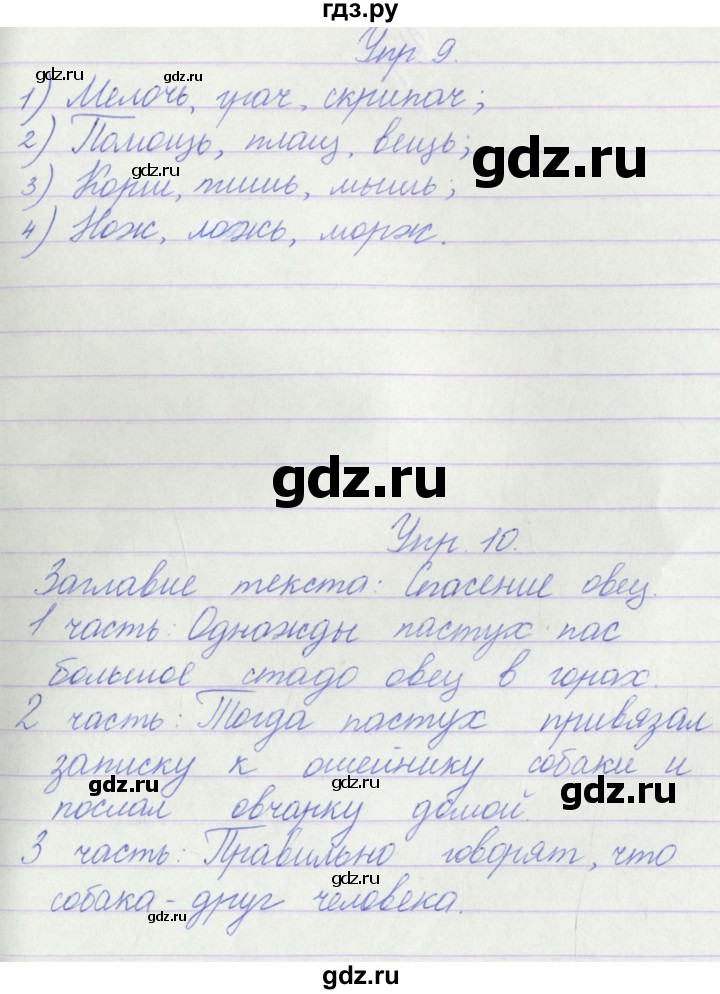 гдз.ру
Упр 9.
gdz.ru
gdz.ru
1) Мелочь, грач, скрипач;
gdz.ru
2) Помощь, плащ, вещь;
gdz.ru
gdz.ru
3) Корш, тишь, мышь;
gdz.ru
4) Нож, ложь, морж.
gdz.ru
Упр. 10.
Заглавие текста: Спасение овец.
1 часть: Однажды пастух пас
большое стадо овец в горах.
2 часть: Тогда пастух привязал
записку к ошейнику собаки и
gdz.ru
gdz.ru
gdz.ru
послал овчарку домой.
3 часть: Правильно говорят, что
gdz.ru
собака - друг человека.
gdz.ru
gdz.ru